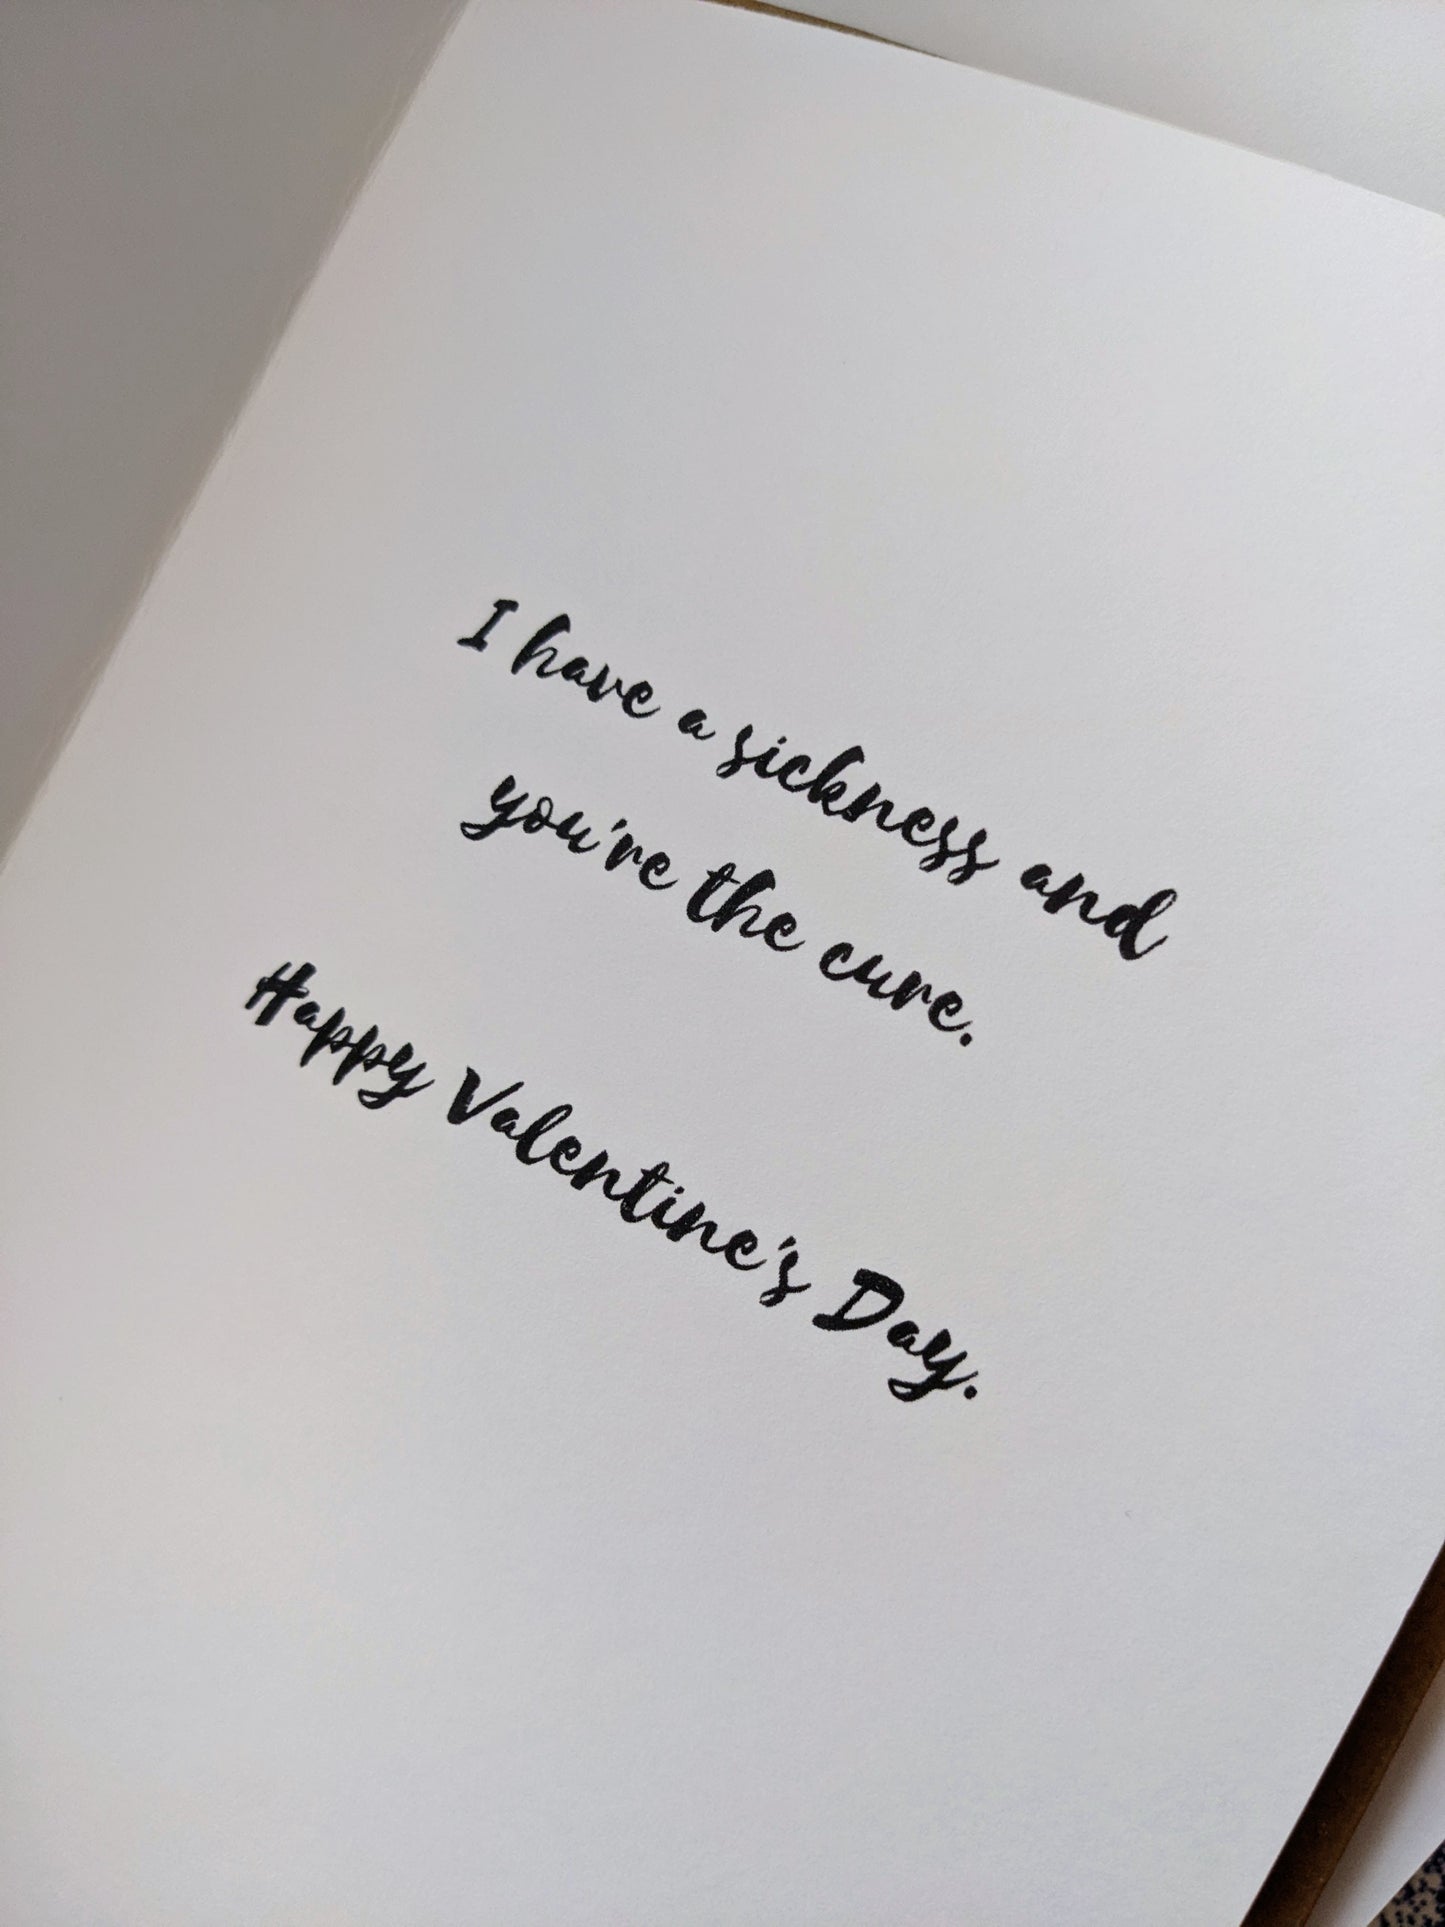 I have a sickness and
you're the cure.
Happy Valentine's Day.